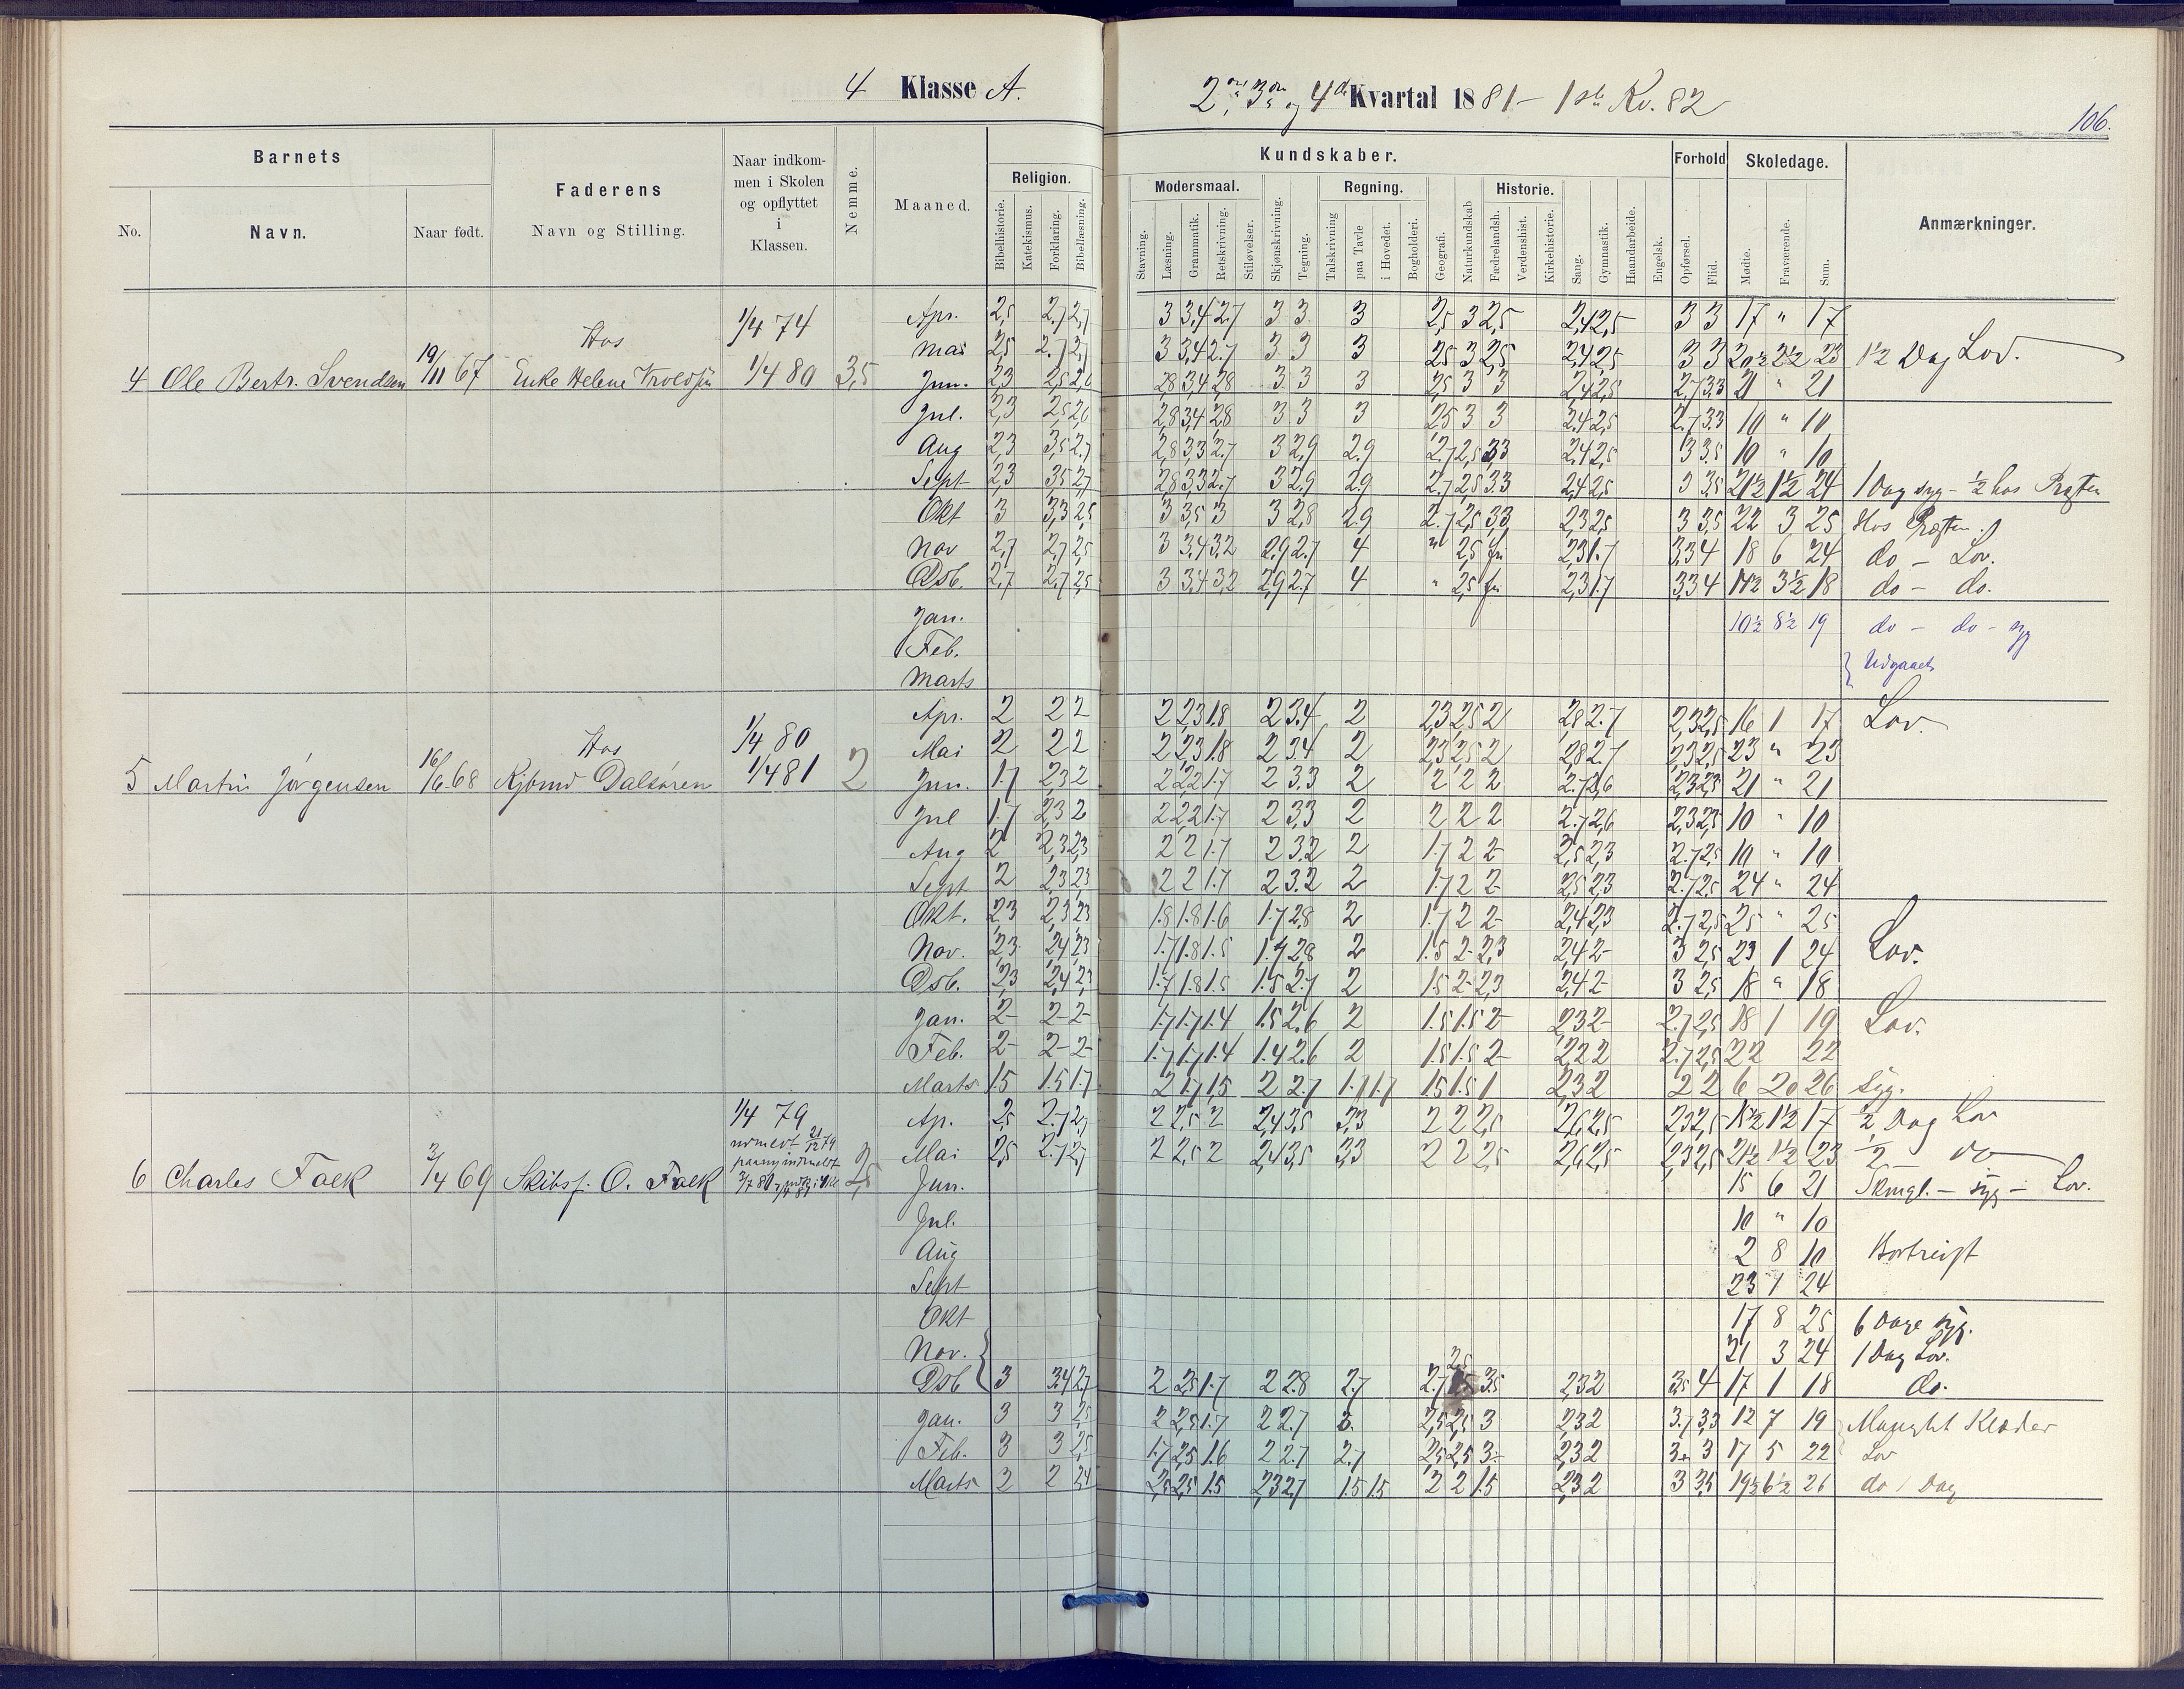 4 Klasse A.
2den, 3die og 4de Kvartal 1881 – 1ste Kv. 82
106.
Barnets
No.
Navn.
Naar født.
Faderens
Navn og Stilling.
Naar indkom-
men i Skolen
og opflyttet
i
Klassen.
Nemme.
Maaned.
Kundskaber.
Religion.
Bibelhistorie.
Katekismus.
Forklaring.
Bibellæsning.
Modersmaal.
Stavning.
Læsning.
Grammatik.
Retskrivning.
Stiløvelser.
Skjønskrivning.
Tegning.
Regning.
Talskrivning
paa Tavle
i Hovedet.
Bogholderi.
Geografi.
Naturkundskab
Historie.
Fædrelandsh.
Verdenshist.
Kirkehistorie.
Sang.
Gymnastik.
Haandarbeide.
Engelsk.
Forhold
Opførsel.
Flid.
Skoledage.
Mødte.
Fraværende.
Sum.
Anmærkninger.
4 Ole Bertr. Svendsen 19/11 67 Hos Enke Helene 1/4 74 1/4 80 3,5
Apr. 2,5 2.7 2,7 3 3,4 2.7 3 3 3 2,5 3 2,5 2,4 2,5 3 3 17 " 17
Mai 2,5 2.7 2,7 3 3,4 2.7 3 3 3 2,5 3 2,5 2,4 2,5 3 3 20½ 2½ 23 1½ Dag Lov.
Jun. 2,3 2,5 2,6 2,8 3,4 2,8 3 3 3 2,5 3 3 2,4 2,5 2.7 3.3 21 " 21
Jul. 2,3 2,5 2,6 2,8 3,4 2,8 3 3 3 2,5 3 3 2,4 2,5 2.7 3.3 10 " 10
Aug 2,3 3,5 2.7 2,8 3,3 2.7 3 2,9 2.9 2.7 2,5 3,3 2,4 2,5 3 3.5 10 " 10
Sept 2,3 3,5 2,7 2,8 3,3 2.7 3 2,9 2.9 2.7 2,5 3.3 2,4 2,5 3 3,5 21½ 1½ 24 1 Dag syg – ½ hos Præsten
Okt 3 3,3 2,5 3 3,5 3 3 2,8 2.9 2.7 2,5 3,3 2,3 2,5 3 3,5 22 3 25 Hos Præsten.
Nov 2,7 2,7 2,5 3 3,4 3,2 2,9 2.7 4 " 2,5 2,3 1.7 3,3 4 18 6 24 do – Lov.
Dsb. 2,7 2.7 2,5 3 3,4 3,2 2,9 2.7 4 " 2,5 2,3 1.7 3,3 4 14½ 3½ 18 do – do.
Jan. 10½ 8½ 19 do – do – syg
Feb. Udgaaet
Marts
5 Martin Jørgensen 16/6 68 Hos Kjbmd Dalsøren 1/4 80 1/4 81 2
Apr. 2 2 2 2 2,3 1.8 2 3.4 2 2,3 2,5 2 2,8 2.7 2,3 2,5 16 1 17 Lov.
Mai 2 2 2 2 2,3 1.8 2 3.4 2 2,3 2,5 2 2,8 2.7 2,3 2,5 23 " 23
Jun. 1.7 2,3 2 2 2,2 1.7 2 3.3 2 2 2 2 2.7 2,6 2,3 2,5 21 " 21
Jul 1.7 2,3 2 2 2,2 1.7 2 3,3 2 2 2 2 2.7 2,6 2,3 2,5 10 " 10
Aug 2 2,3 2,3 2 2 1.7 2 3.2 2 1.7 2 2- 2,5 2,3 2.7 2,5 10 " 10
Sept 2 2,3 2,3 2 2 1.7 2 3.2 2 1.7 2 2- 2,5 2,3 2.7 2,5 24 " 24
Okt. 2,3 2,3 2,3 1.8 1.8 1.6 1.7 2,8 2 1.7 2 2- 2,4 2,3 2.7 2,5 25 " 25
Nov. 2,3 2,4 2,3 1.7 1.8 1.5 1.7 2,8 2 1.5 2- 2,3 2,4 2- 3 2,5 23 1 24 Lov.
Dsb. 2,3 2,4 2,3 1.7 1.8 1.5 1.5 2.7 2 1.5 2- 2,3 2,4 2- 3 2,5 18 " 18
Jan. 2- 2- 2- 1.7 1.7 1.4 1.5 2.6 2 1.5 1.5 2- 2,3 2- 2.7 2,5 18 1 19 Lov.
Feb. 2- 2- 2- 1.7 1.7 1.4 1.4 2.6 2 1.5 1.5 2- 2,2 2 2.7 2,5 22 22
Marts 1.5 1.5 1.7 2 1.7 1,5 2 2.7 1.7 1.7 1.5 1.5 1 2,3 2 2 2 6 20 26 Syg.
6 Charles Falk 3/4 69 Skibsf. O. Falk 1/4 79 udmeldt 21/12 79 paany indmeldt 2,5
Ap. 2,5 2.7 2,7 2 2,5 2 2,4 3,5 3,3 2 2 2,5 2,6 2,5 2,3 2,5 15½ 1½ 17 ½ Dag Lov
Mai 2,5 2.7 2,7 2 2,5 2 2,4 3,5 3,3 2 2 2,5 2,6 2,5 2,3 2,5 21½ 1½ 23 ½ – do
Jun. 15 6 21 Skmgl. – syg – Lov.
Jul. 10 " 10
Aug 2 8 10 Bortreist
Sept 23 1 24
Okt 17 8 25 6 Dage syg.
Nov. 21 3 24 1 Dag Lov.
Dsb 3 3.4 2,7 2 2,5 1.7 2 2.8 2.7 2.7 2,5 3,5 2,3 2 3,5 4 17 1 18 do.
Jan. 3 3 2,5 2 2,5 1.7 2 2.7 3. 2,5 2,5 3 2,3 2 3.7 3,3 12 7 19 Manglet Klæder
Feb. 3 3 2,5 1.7 2,5 1.6 2 2.7 2.7 2,5 2,5 3- 2,3 2 3 3 17 5 22 Lov
Marts 2 2 2,4 2,5 2,5 1.5 2,3 2,7 1.5 1.5 2 2 1.5 2,3 2 3 3,5 19½ 6½ 26 do 1 Dag